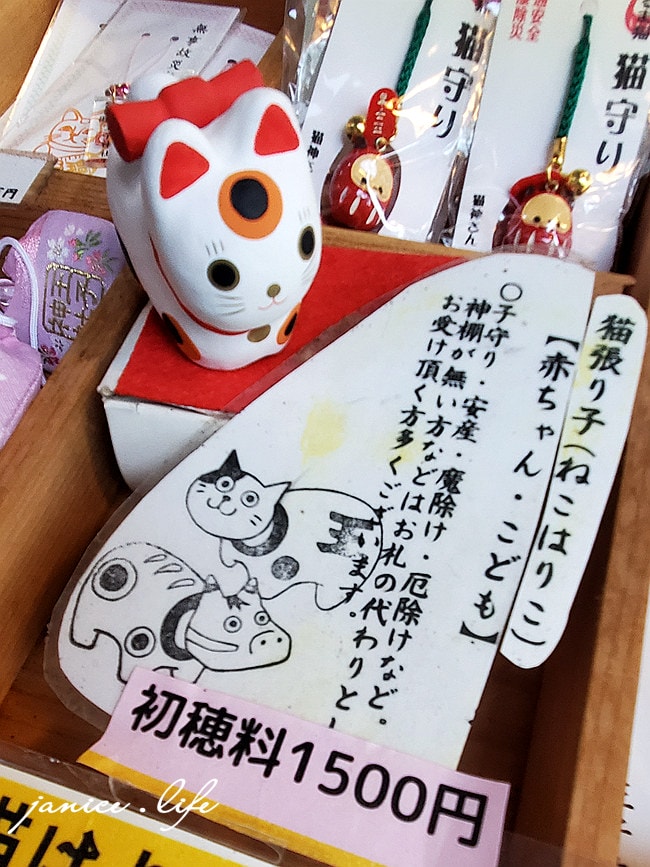 猫守り
猫守り
猫神さん
猫張り子(ねこはりこ)
【赤ちゃん・こども】
○子守り・安産・魔除け・厄除けなど。
神棚が無い方などはお札の代わりとし
お受け頂く方多くございます。
初穂料1500円
janice.life